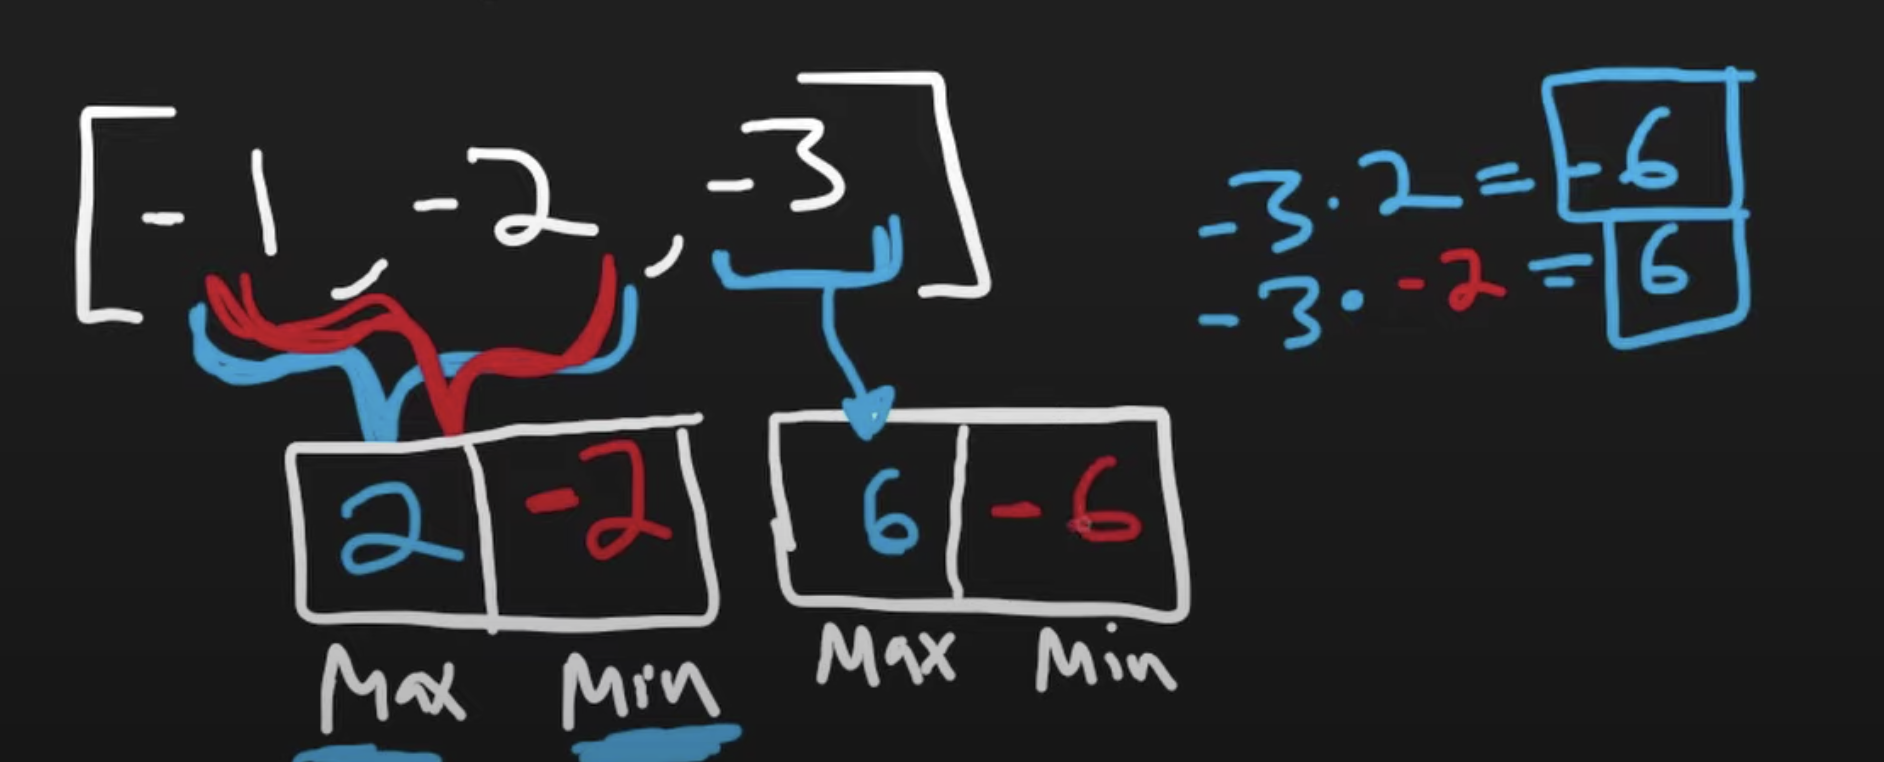 [-1, -2, -3]
-3 · 2 = -6
-3 · -2 = 6
2 -2
Max Min
6 -6
Max Min